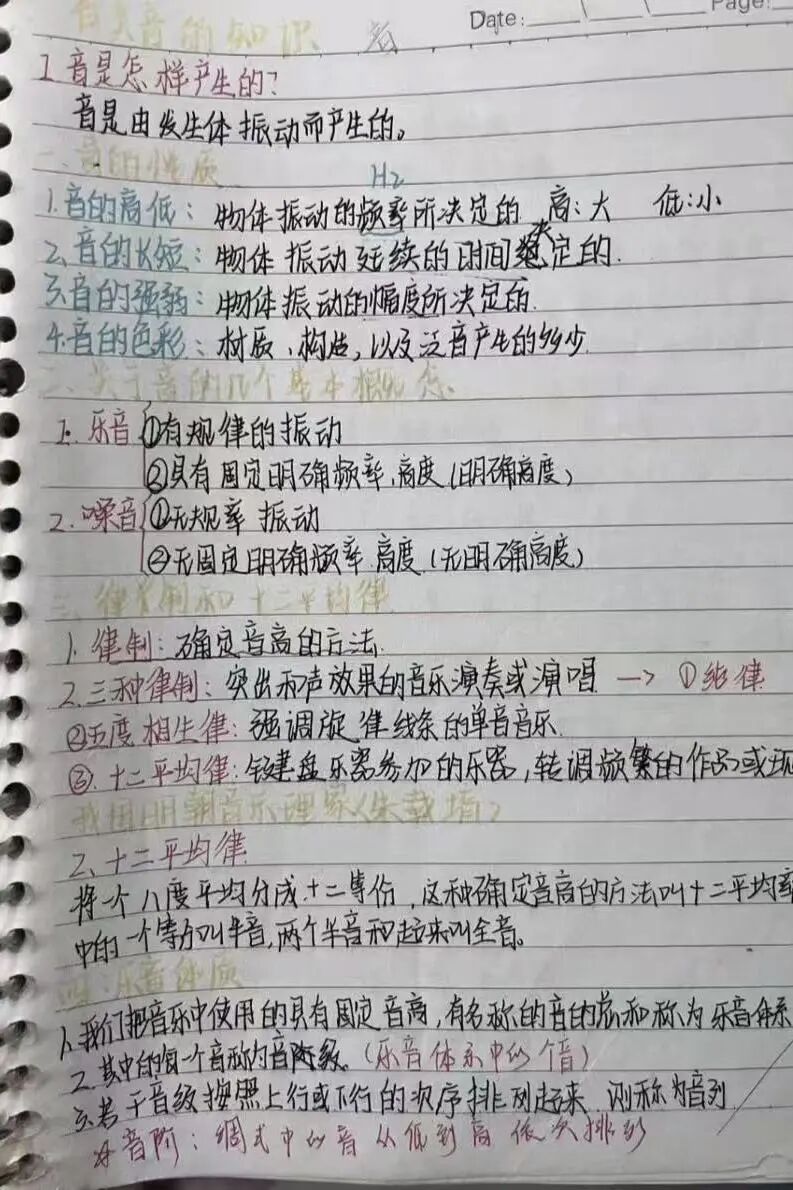 Date: Page:
音的知识
1音是怎样产生的?
音是由发生体振动而产生的。
一、音的性质
Hz
1.音的高低: 物体振动的频率所决定的 高:大 低:小
2.音的长短: 物体振动延续的时间决定的.
3.音的强弱: 物体振动的幅度所决定的.
4.音的色彩: 材质、构造,以及泛音产生的多少.
二、关于音的几个基本概念.
1. 乐音 ①有规律的振动
②具有固定明确频率,高度(明确高度)
2. 噪音 ①无规率振动
②无固定明确频率.高度(无明确高度)
三、律制和十二平均律
1. 律制: 确定音高的方法.
2.三种律制: 突出和声效果的音乐演奏或演唱 → ①纯律
②五度相生律: 强调旋律线条的单音音乐.
③.十二平均律: 键盘乐器参加的乐器,转调频繁的作品或现
我国明朝音乐理家(朱载堉)
2、十二平均律
将一个八度平均分成十二等份,这种确定音高的方法叫十二平均率
中的一个等分叫半音,两个半音和起来叫全音。
四.乐音体质
1.我们把音乐中使用的具有固定音高,有名称的音的总和称为乐音体系
2.其中的每一个音称为音阶级.(乐音体系中的个音)
3.若干音级按照上行或下行的次序排列起来.则称为音列
☆音阶: 调式中的音从低到高依次排列